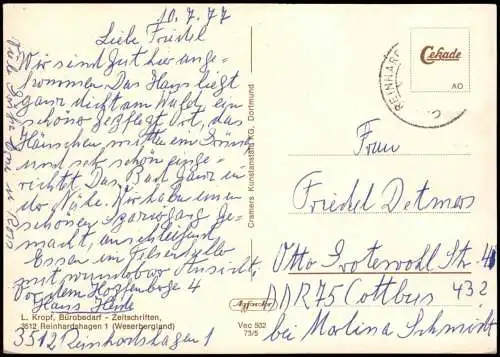 10.7.77
Liebe Friedel
Wir sind gut hier ange-
kommen Das Haus liegt
ganz dicht am Walde, ein
schöner gepflegt Ort, das
Häuschen mitten im Grünen
und sehr schön einge-
richtet. Das Bad ganz in
der Nähe. Wir haben einen
schönen Spaziergang ge-
macht, anschließend
Essen im Felsenkeller
mit wunderbar Aussicht.
Vor dem Hopfenberge 4
Haus Heide
3512 Reinhardshagen 1
Viele Grüße
L. Kropf, Bürobedarf - Zeitschriften,
3512 Reinhardshagen 1 (Weserbergland)
Cramers Kunstanstalt KG, Dortmund
Veo 502
73/5
REINHARD
Cekade
AO
Frau
Friedel Detmers
Otto Grotewohl Str. 4
DDR 75 Cottbus 432
bei Molina Schmidt